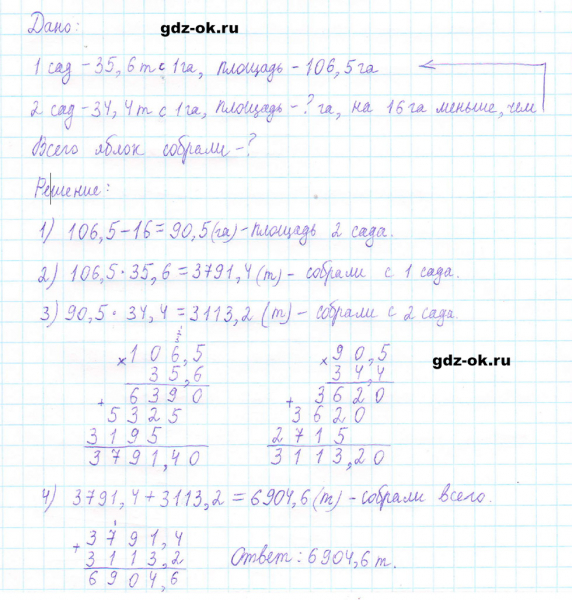 Дано:
gdz-ok.ru
1 сад - 35,6 т с 1 га, площадь - 106,5 га
2 сад - 34,4 т с 1 га, площадь - ? га, на 16 га меньше, чем
Всего яблок собрали - ?
Решение:
1) 106,5 - 16 = 90,5 (га) - площадь 2 сада.
2) 106,5 · 35,6 = 3791,4 (т) - собрали с 1 сада.
3) 90,5 · 34,4 = 3113,2 (т) - собрали с 2 сада.
× 106,5
35,6
+ 6390
5325
3195
3791,40
× 90,5
34,4
+ 3620
3620
2715
3113,20
gdz-ok.ru
4) 3791,4 + 3113,2 = 6904,6 (т) - собрали всего.
+ 3791,4
3113,2
6904,6
Ответ: 6904,6 т.